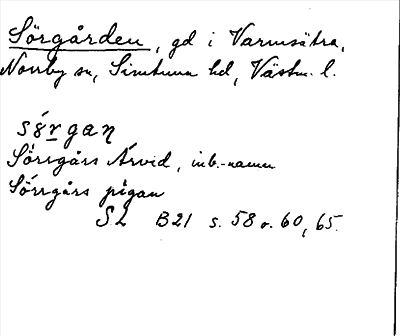 Sörgården, gd i Varmsätra,
Norrby sn, Simtuna hd, Västm. l.
sörgan
Sörrgårs Arvid, inb.-namn
Sörrgårs pigan
SL B21 s. 58 o. 60, 65.